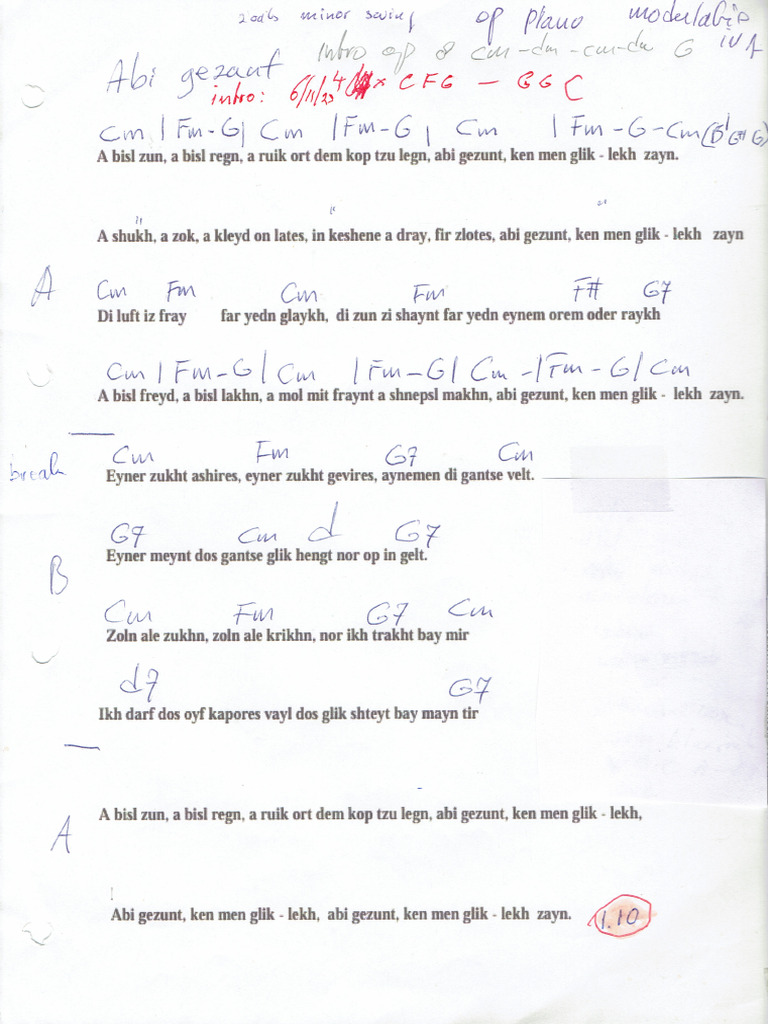 minor swing op piano
Intro op 8 cm-dm-cm-dm G
Abi gezunt
intro: 6/11/23 4x C F G — G G C
Cm | Fm-G | Cm | Fm-G | Cm | Fm-G-Cm
A bisl zun, a bisl regn, a ruik ort dem kop tzu legn, abi gezunt, ken men glik - lekh zayn.
" " "
A shukh, a zok, a kleyd on lates, in keshene a dray, fir zlotes, abi gezunt, ken men glik - lekh zayn
A Cm Fm Cm Fm F# G7
Di luft iz fray far yedn glaykh, di zun zi shaynt far yedn eynem orem oder raykh
Cm | Fm-G | Cm | Fm-G | Cm -| Fm-G | Cm
A bisl freyd, a bisl lakhn, a mol mit fraynt a shnepsl makhn, abi gezunt, ken men glik - lekh zayn.
break Cm Fm G7 Cm
Eyner zukht ashires, eyner zukht gevires, aynemen di gantse velt.
G7 Cm d G7
Eyner meynt dos gantse glik hengt nor op in gelt.
B
Cm Fm G7 Cm
Zoln ale zukhn, zoln ale krikhn, nor ikh trakht bay mir
d7 G7
Ikh darf dos oyf kapores vayl dos glik shteyt bay mayn tir
A bisl zun, a bisl regn, a ruik ort dem kop tzu legn, abi gezunt, ken men glik - lekh,
A
Abi gezunt, ken men glik - lekh, abi gezunt, ken men glik - lekh zayn. 1.10